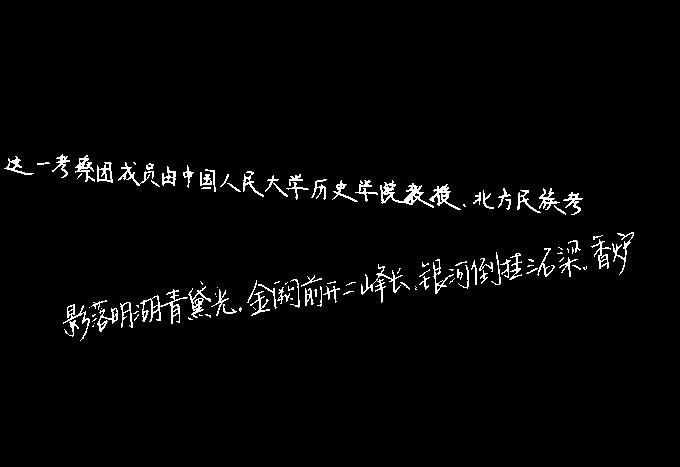 这一考察团成员由中国人民大学历史学院教授、北方民族考
影落明湖青黛光，金阙前开二峰长，银河倒挂三石梁。香炉